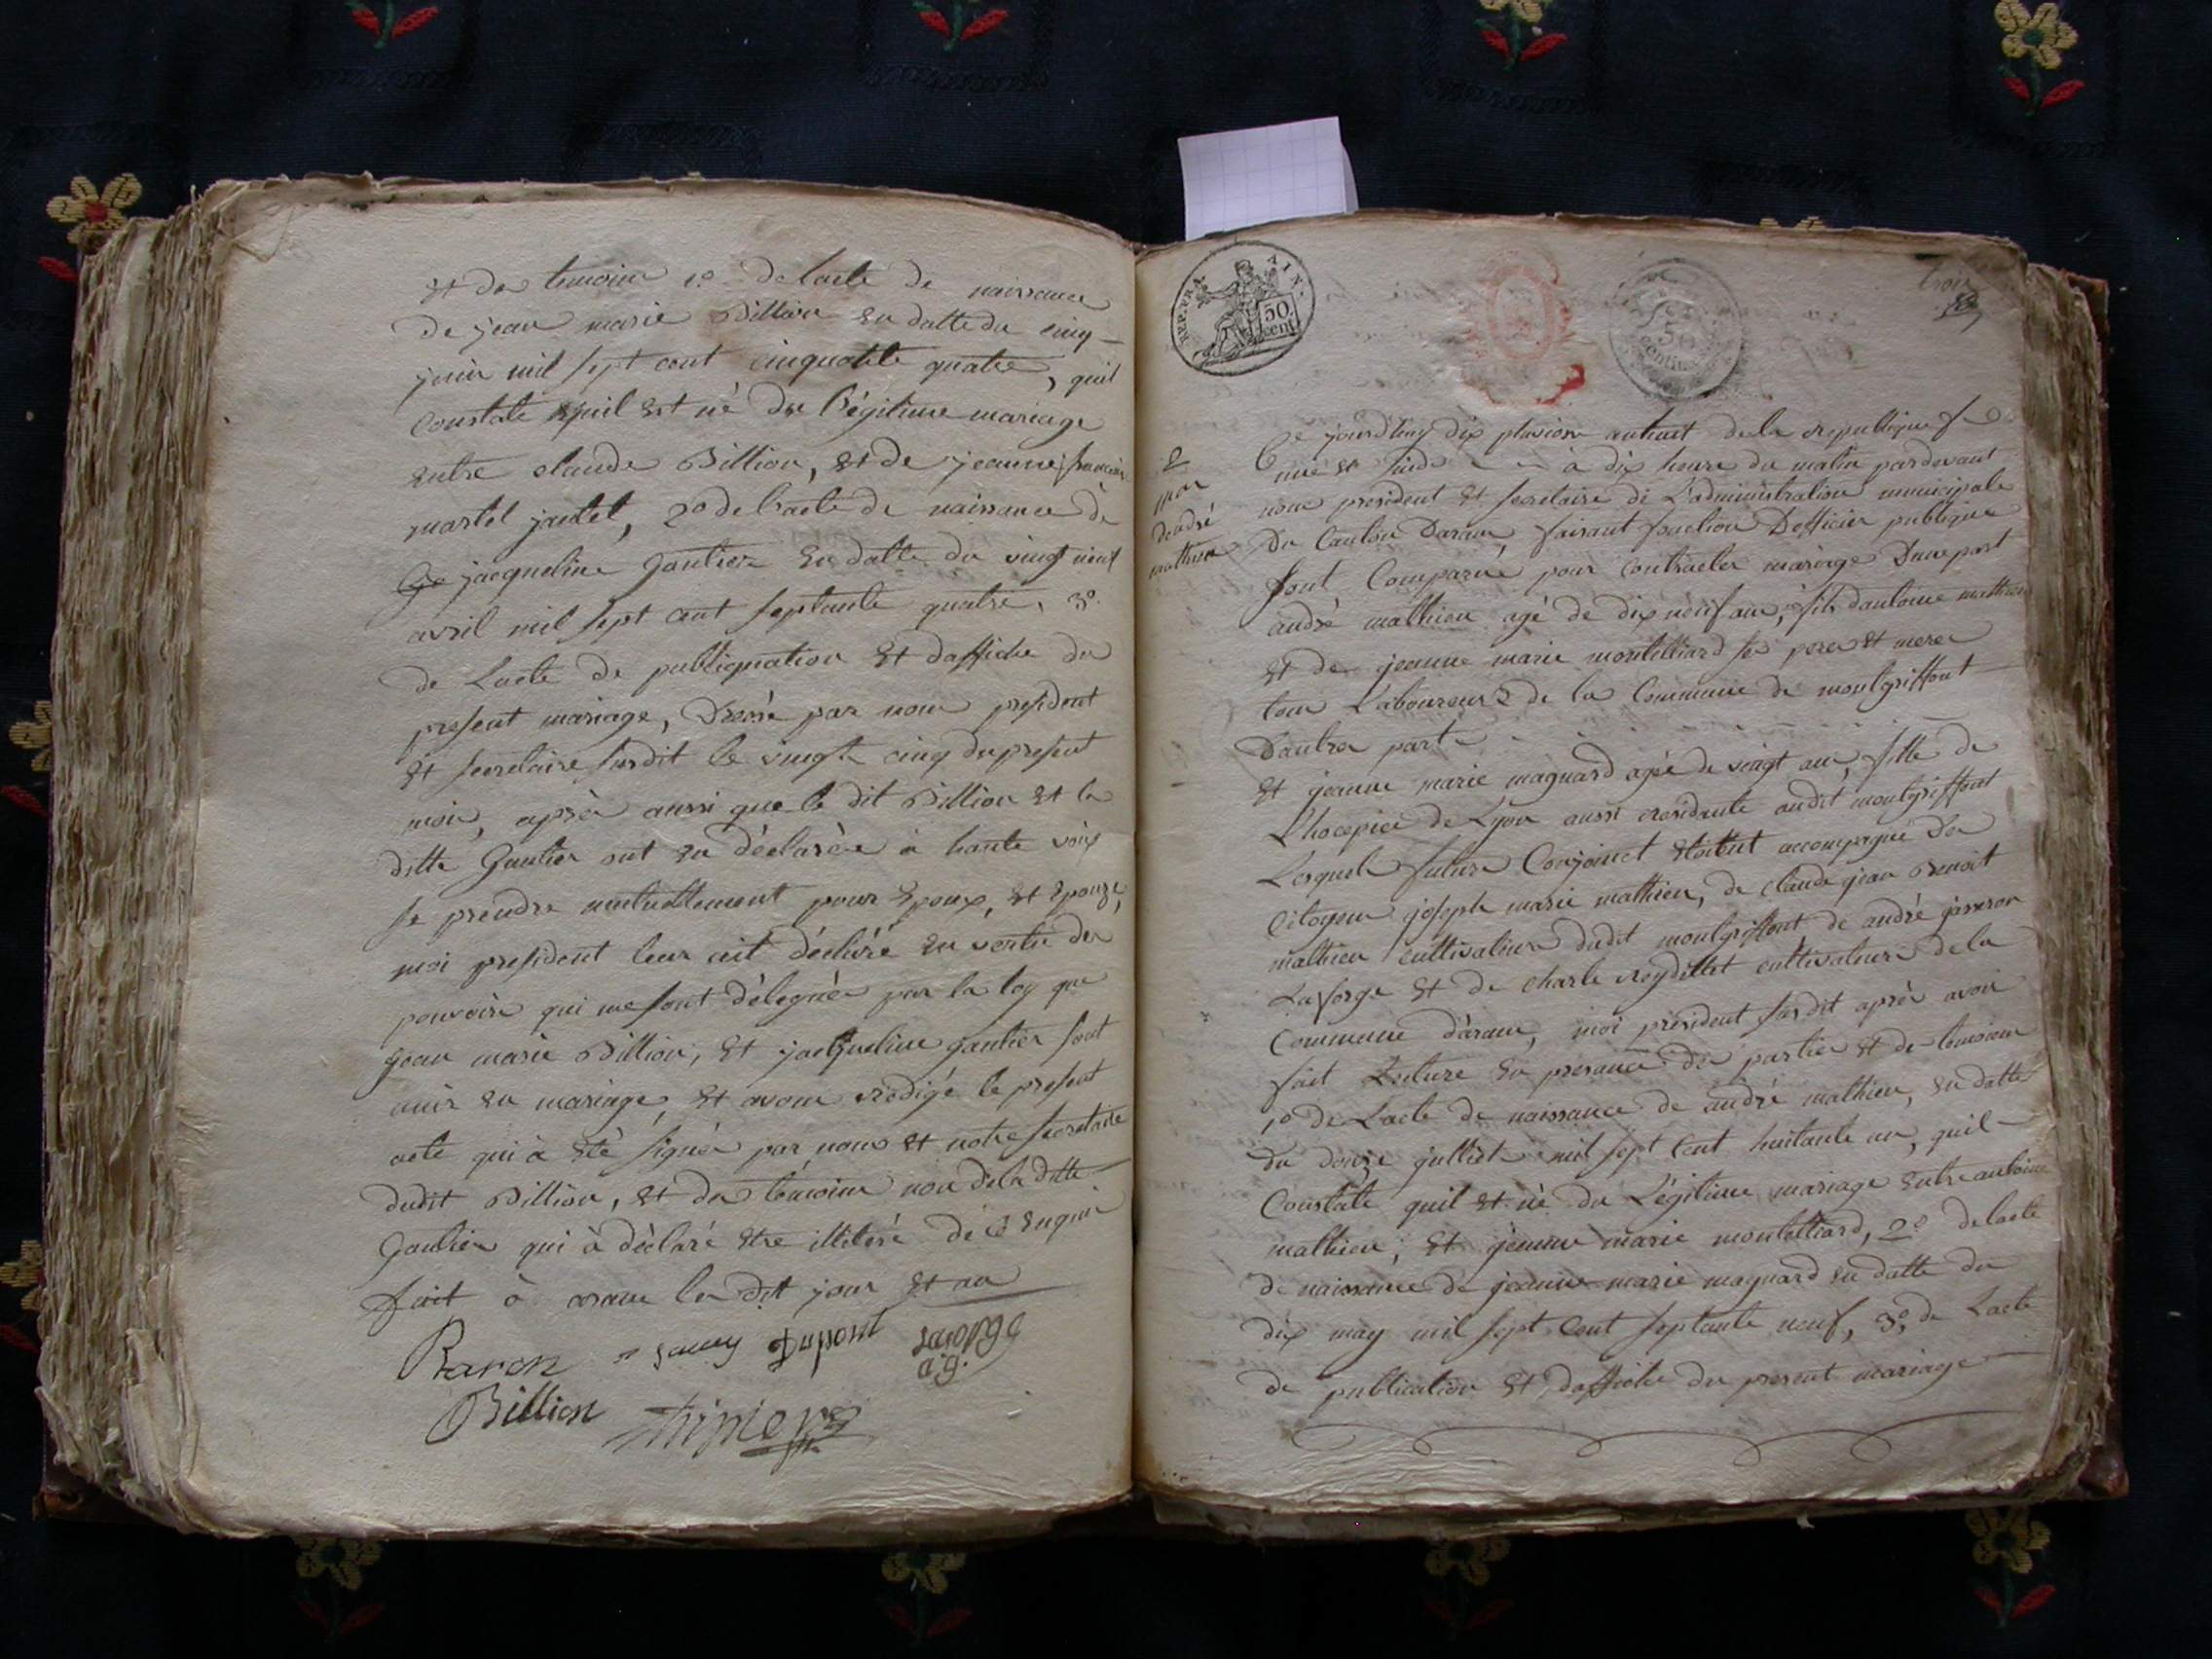 et des temoins 1º de lacte de naissance
de jean marie Billion en datte du cinq
juin mil sept cent cinquante quatre, quil
constate quil est né du légitime mariage
entre claude Billion, et de jeanne francoise
martel jantet, 2º de lacte de naissance de
jacqueline gautier en datte du vingt neuf
avril mil sept cent septante quatre, 3º
de Lacte de publiquation et daffiche du
present mariage, dressé par nous president
et secretaire susdit le vingt cinq du present
mois, après aussi que le dit Billion et la
ditte Gautier ont eu déclarée à haute voix
se prendre mutuellement pour Epoux, et Epouze,
moi president leur ait déclaré en vertu des
pouvoirs qui me sont délegués par la loy que
jean marie Billion, et jacqueline gautier sont
unis en mariage, et avons rédigé le present
acte qui à été signés par nous et notre secretaire
dudit Billion, et des temoins non de la ditte
Gautier qui à déclaré etre illiteré de ce enquis
fait à aranc les dit jour et an
Ravon Savey Dupont Laforge
a.g.
Billion
REP. FRA. AIN.
50 cent.
50
centim
trois
2
mar
dandré
mathieu
Ce jourdhuy dix pluviose anhuit de la republique f
une et ind à dix heures du matin pardevant
nous president et secretaire de L'administration municipale
du Canton Daranc, faisant fonction Dofficier publique
sont Comparus pour contracter mariage Dune part
andré mathieu agé de dix neuf ans, fils dantoine mathieu
et de jeanne marie montilliard ses peres et meres
tous Laboureurs de la Commune de montgriffont
Dautres part
et jeanne marie magnard agée de vingt ans, fille de
L'hocepice de Lyon aussi residante audit montgriffont
Lesquels futurs Conjoinct etoient accompagné des
Citoyens joseph marie mathieu, de claude jean Benoit
mathieu cultivateurs dudit montgriffont de andré jasseron
Laforge et de charle reydellet cultivateurs de la
Commune d'aranc, moi president susdit après avoir
fait Lecture en presance des parties et de temoins
1º de Lacte de naissance de andré mathieu, en datte
du douze julliet mil sept cent huitante un, quil
Constate quil et né du Légitime mariage entre antoine
mathieu, et jeanne marie montelliard, 2º de lacte
de naissance de jeanne marie magnard en datte du
dix may mil sept cent septante neuf, 3º, de Lacte
de publication et daffiche du present mariage